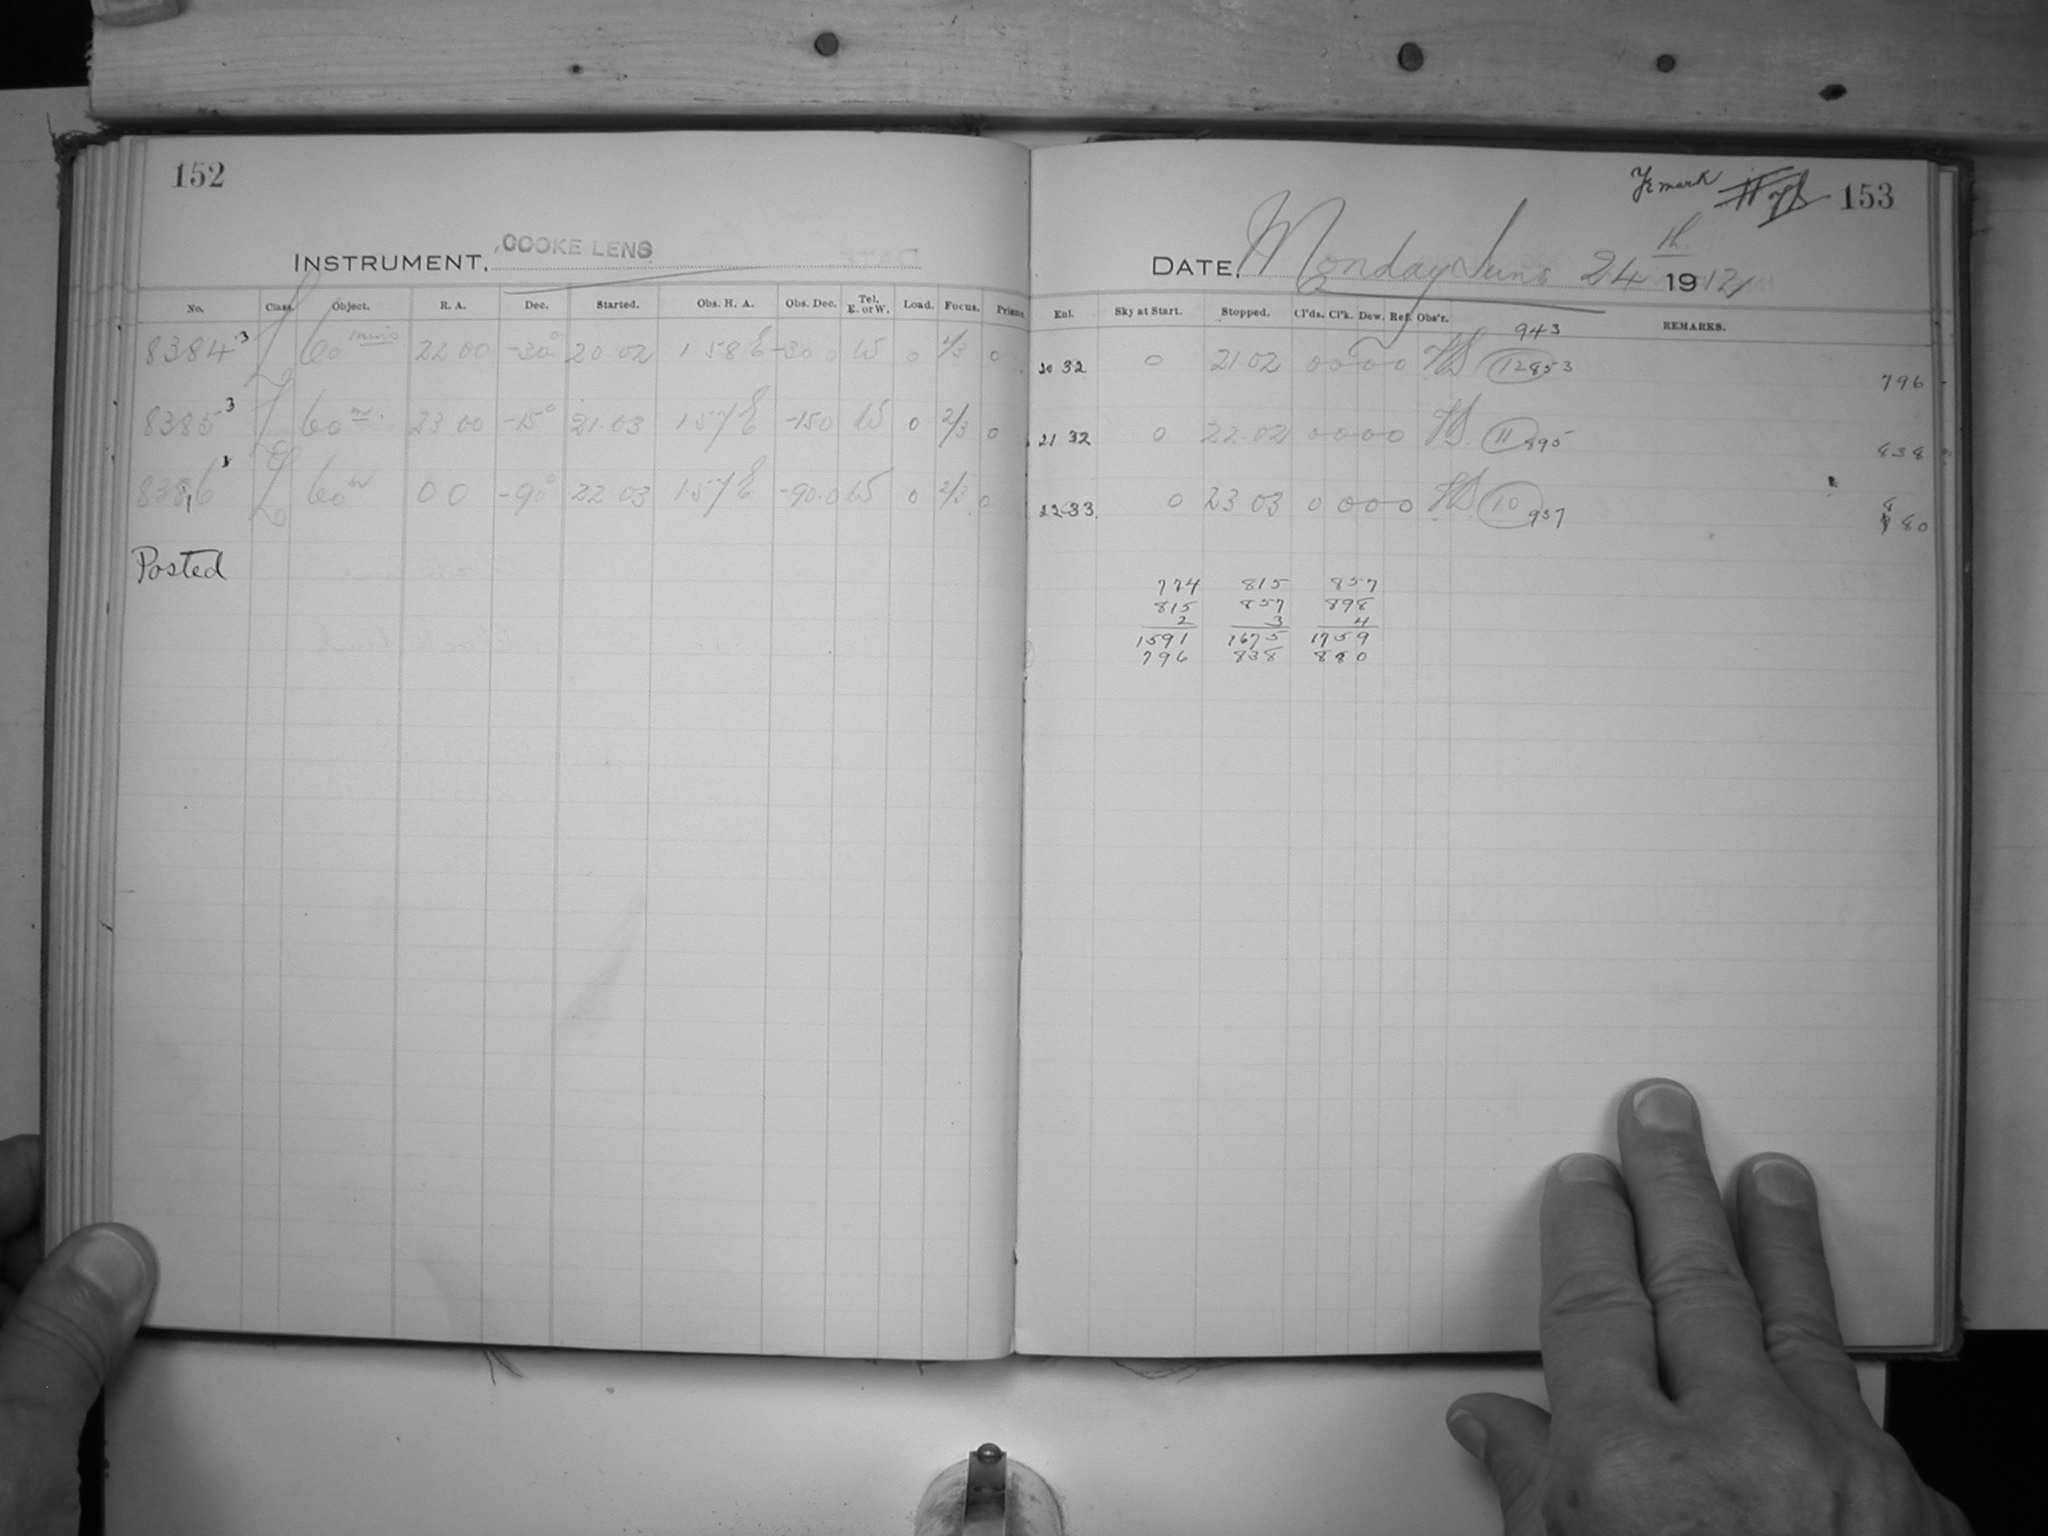 152
INSTRUMENT, COOKE LENS
No. Class. Object. R. A. Dec. Started. Obs. H. A. Obs. Dec. Tel. E. or W. Load. Focus. Prisms.
8384 3 L 60 mins 22 00 -30° 20 02 1 58 E -30 0 W 0 2/3 0
8385 3 L 60 m. 23 00 -15° 21.03 1 57 E -15 0 W 0 2/3 0
8386 3 L 60 m 0 0 -90° 22 03 1.57 E -90.0 W 0 2/3 0
Posted
mark 153
DATE, Monday June 24th 1912
Enl. Sky at Start. Stopped. Cl'ds. Cl'k. Dew. Ref. Obs'r. REMARKS.
943
20 32 0 21.02 0 0 0 0 12 853
796
21 32 0 22.02 0 0 0 0 11 895
838
22 33 0 23 03 0 0 0 0 10 937
880
774 815 857
815 857 898
2 3 4
1591 1675 1759
796 838 880